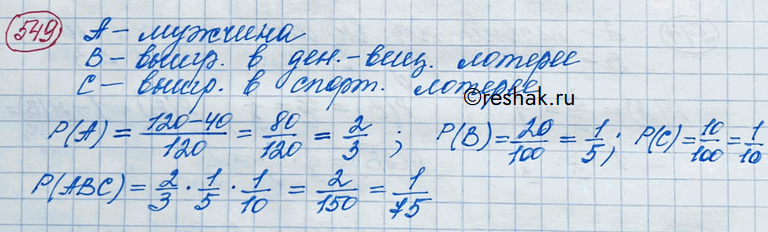 549 А – мужчина
В – выигр. в ден.-вещ. лотерее
С – выигр. в спорт. лотерее
©reshak.ru
P(A) = \frac{120-40}{120} = \frac{80}{120} = \frac{2}{3} ; P(B) = \frac{20}{100} = \frac{1}{5} ; P(C) = \frac{10}{100} = \frac{1}{10}
P(ABC) = \frac{2}{3} · \frac{1}{5} · \frac{1}{10} = \frac{2}{150} = \frac{1}{75}